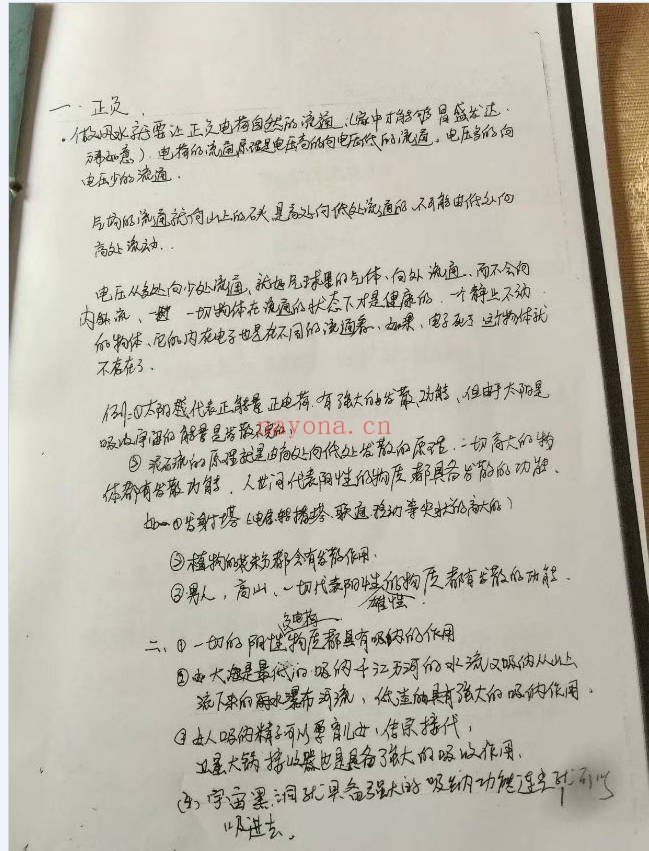 一. 正负.
·做风水就要让正负电荷自然的流通.(家中才能够冒盛发达.
如意).电荷的流通原理是电压高的向电压低的流通,电压多的向
电压少的流通.
气场的流通就像山上的石头是高处向低处流通的.不可能由低处向
高处流动..
电压从多处向少处流通,就好气球里的气体.向外流通.而不会向
内流,一切物体在流通的状态下才是健康的.一个静止不动
的物体、它的内在电子也是在不同的流通着.如果,电子死了这个物体就
不存在了.
例=①太阳代表正能量正电荷.有强大的发散功能,但由于太阳是
吸收宇宙的能量是发散不完的.
②泥石流的原理就是由高处向低处发散的原理.一切高大的物
体都有发散功能.人世间代表阳性的物质都具备发散的功能.
如=①发射塔(电信转播塔.联通移动等尖状的高大的)
②植物的装束都含有发散作用.
③男人,高山,一切代表阳性的物质都有发散的功能.
雄性.
负电荷
二、①一切的阴性物质都具有吸纳的作用
②如大海是最低的吸纳千江万河的水流又吸纳从山上
流下来的雨水瀑布河流,低洼的具有强大的吸纳作用.
③女人吸纳精子可以孕育儿女,传宗接代,
卫星大锅接收器也是具备了强大的吸收作用.
宇宙黑洞就具备强大的吸纳功能连
吸进去。
nayona.cn